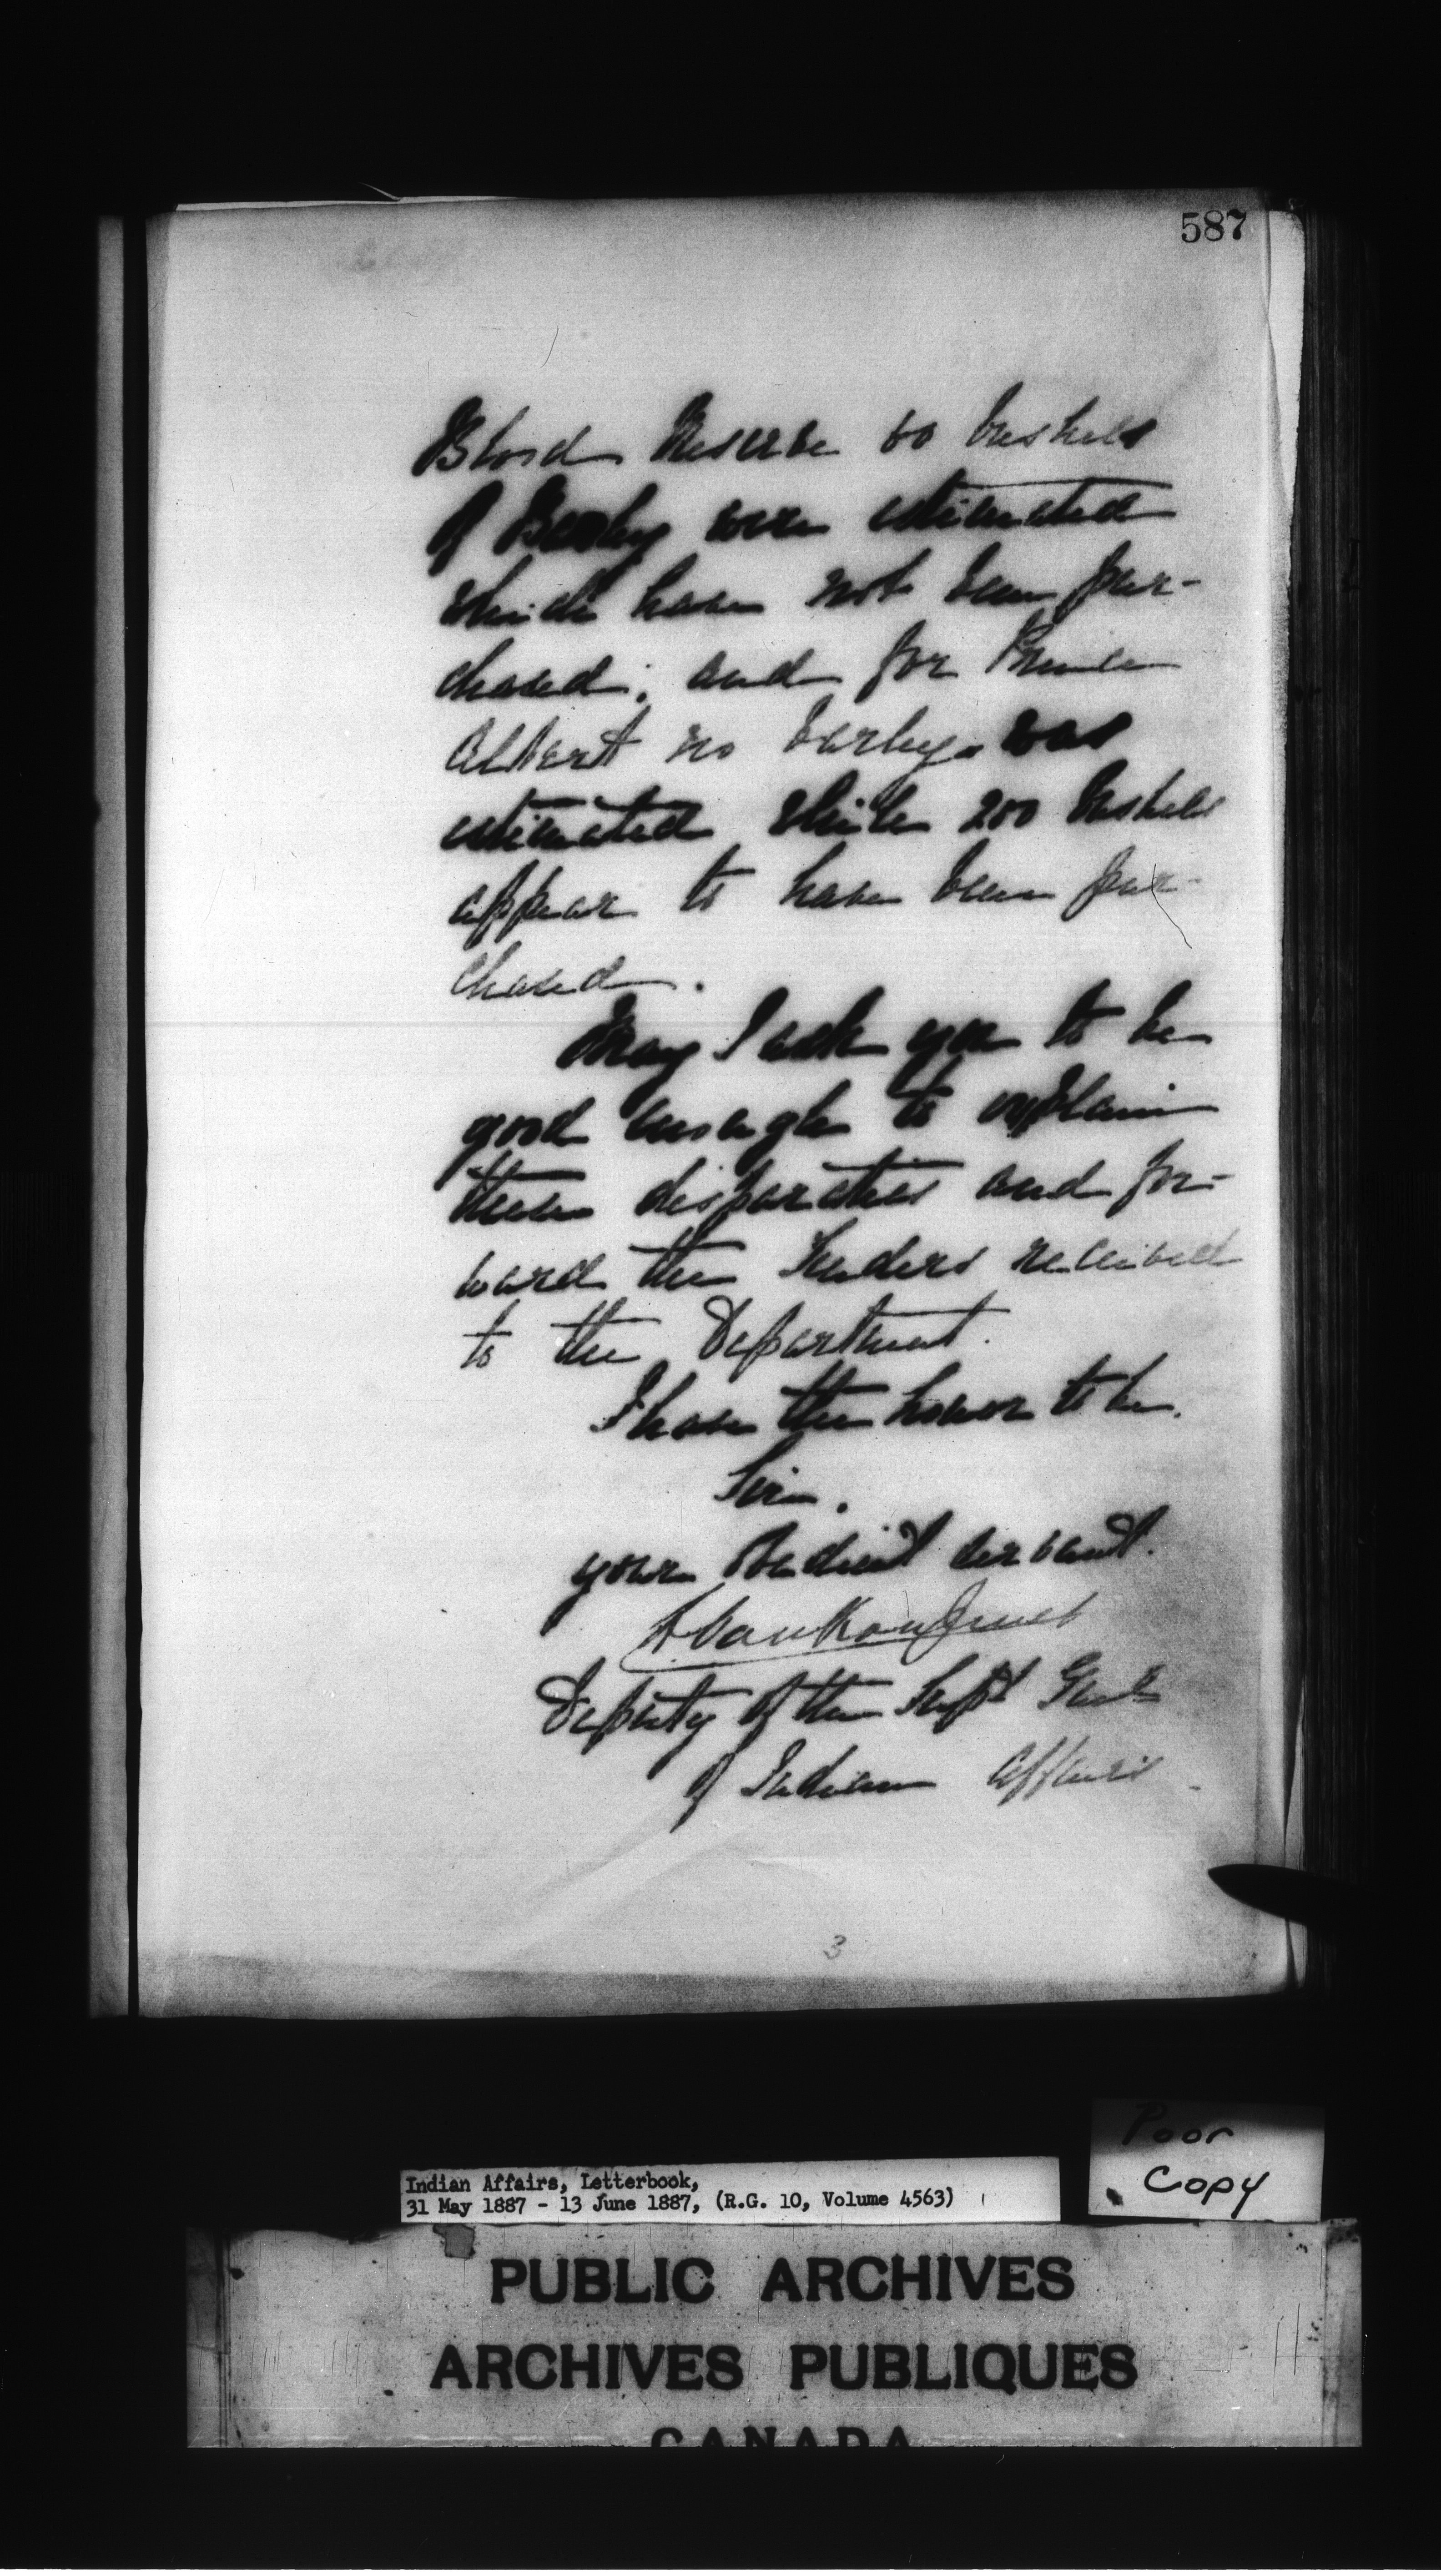 587
Blood Reserve 60 bushels
of Barley were estimated
which have not been pur-
chased; and for Prince
Albert no barley was
estimated while 200 bushels
appear to have been pur-
chased.
May I ask you to be
good enough to explain
these disparaties and for-
ward the tenders received
to the Department.
I have the honor to be.
Sir.
your obedient servant.
L. VanKoughnet
Deputy of the Supt Genl
of Indian Affairs
3
Poor
Copy
Indian Affairs, Letterbook,
31 May 1887 - 13 June 1887, (R.G. 10, Volume 4563)
PUBLIC ARCHIVES
ARCHIVES PUBLIQUES
CANADA